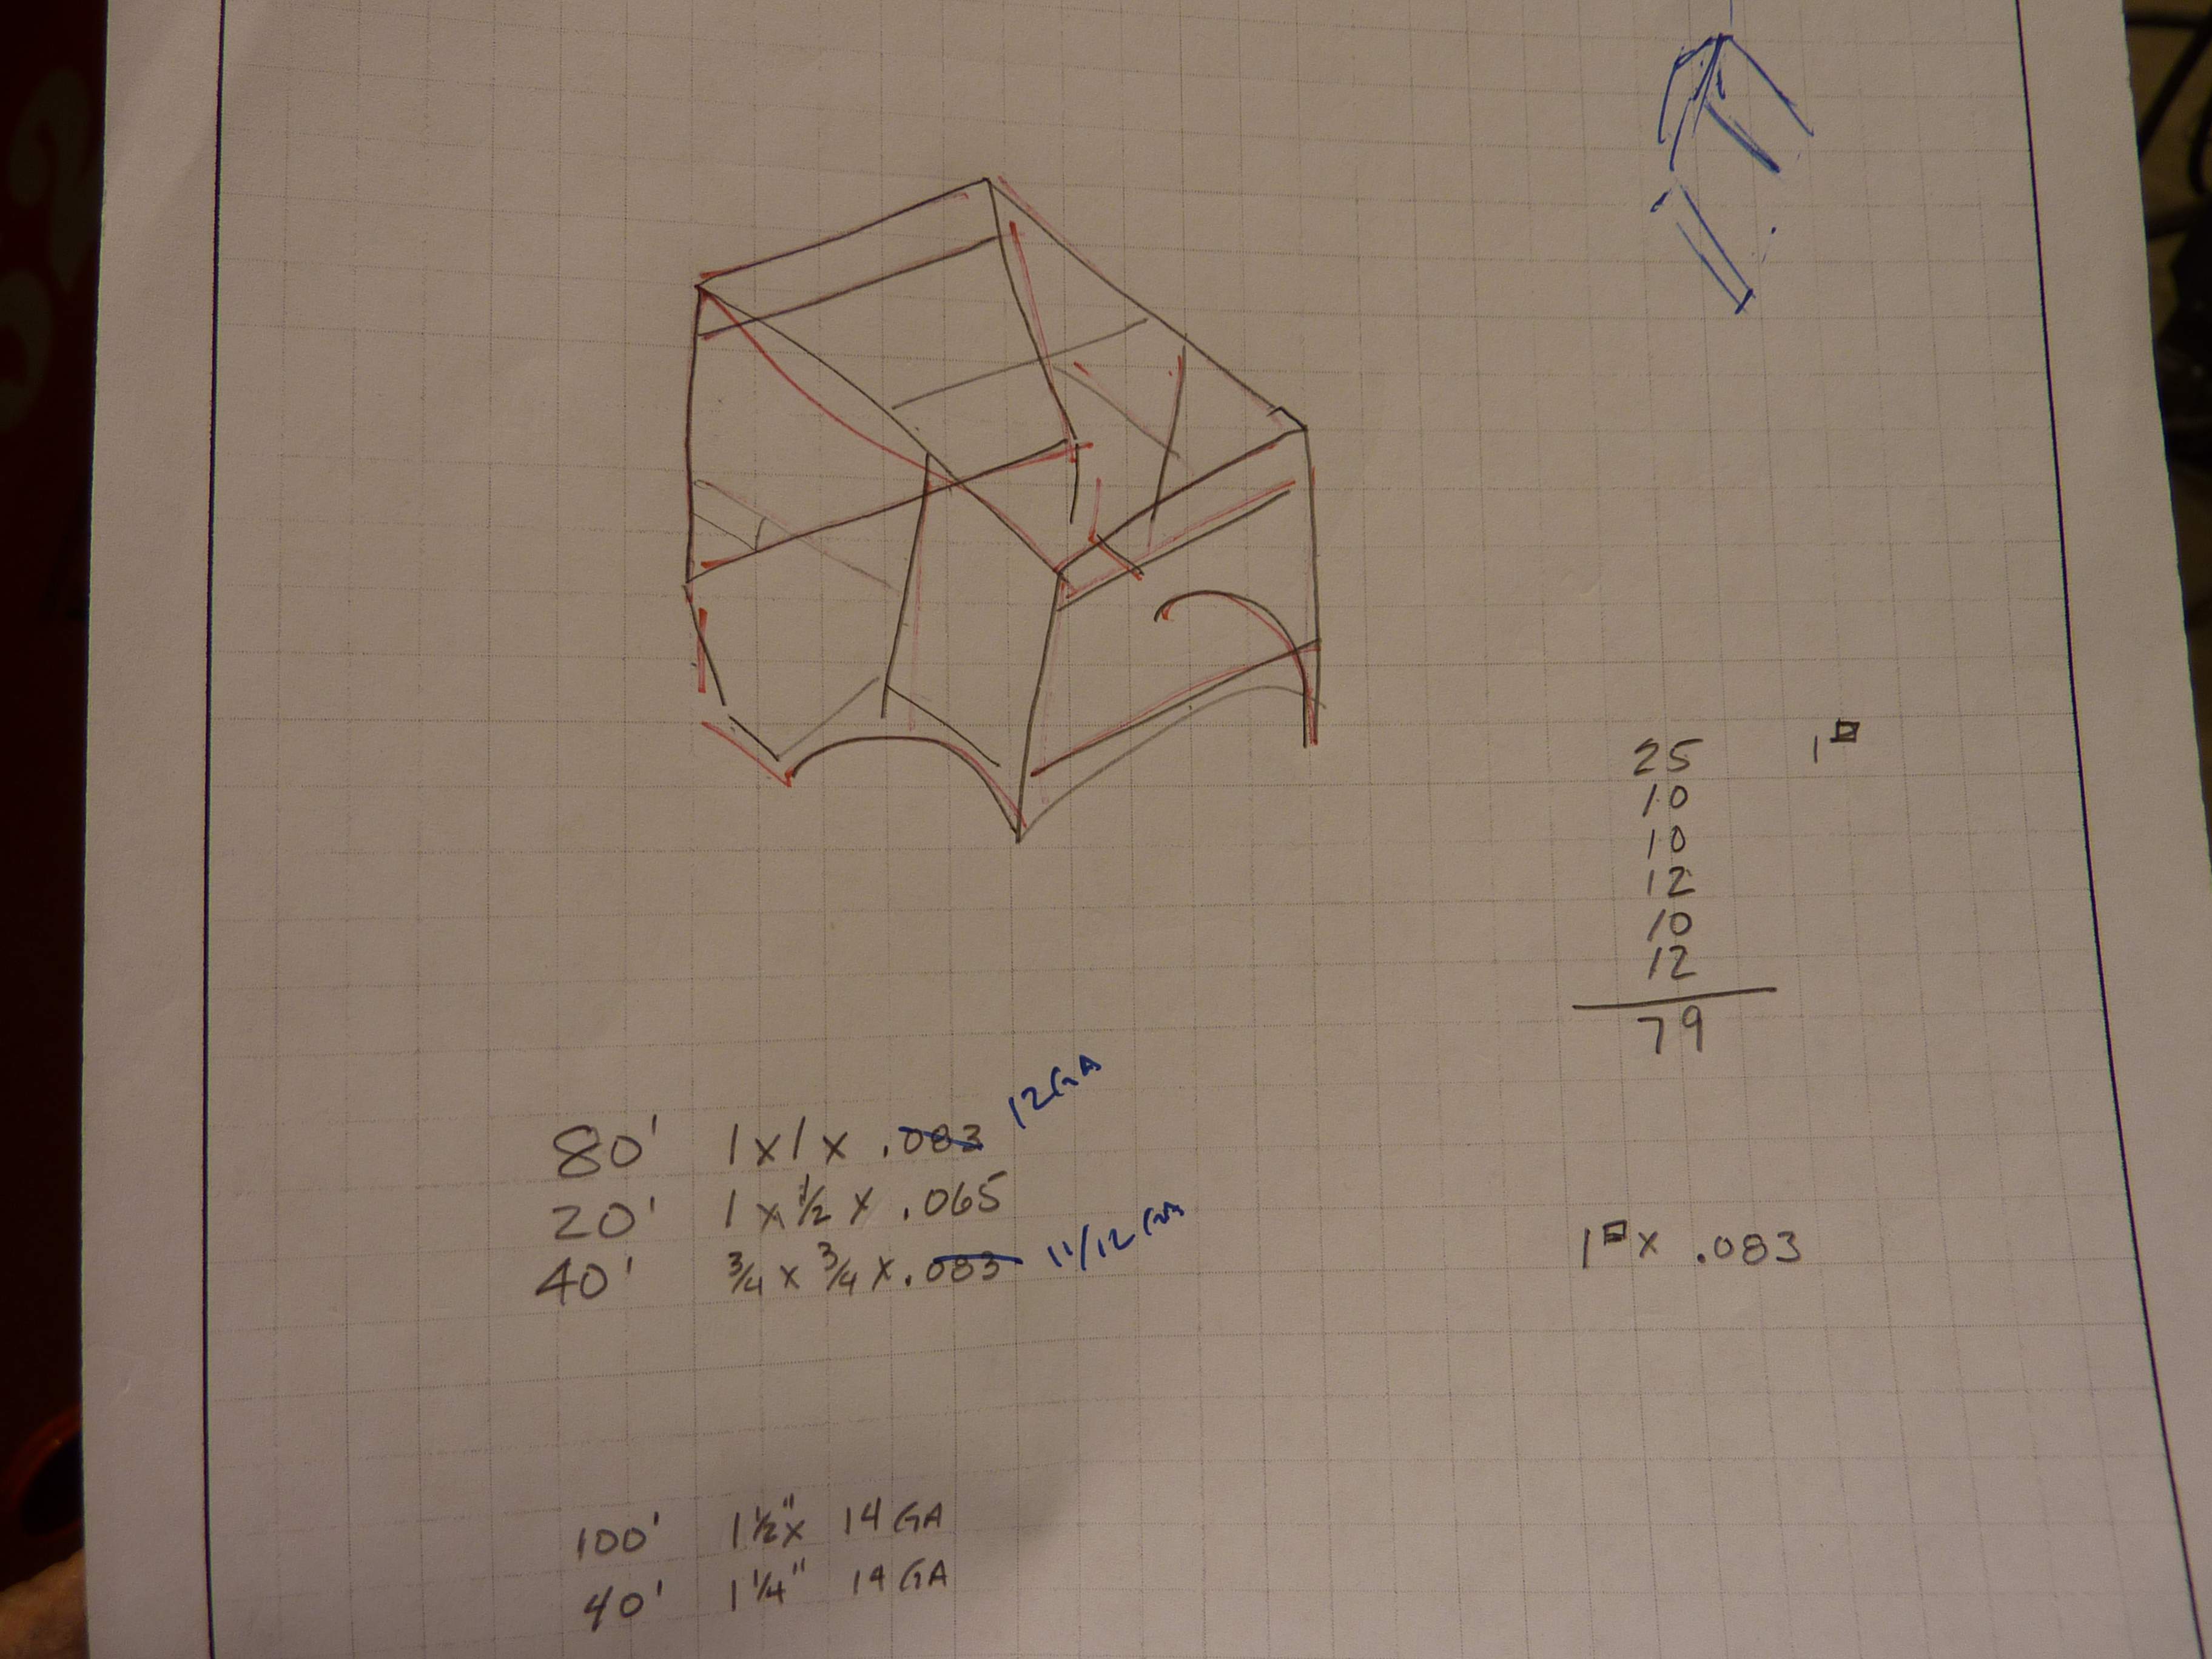 25 1
10
10
12
10
12
79
80' 1 x 1 x .083 12GA
20' 1 x 1/2 x .065
40' 3/4 x 3/4 x .083 11/12 GA
1 x .083
100' 1 1/2" x 14 GA
40' 1 1/4" 14 GA